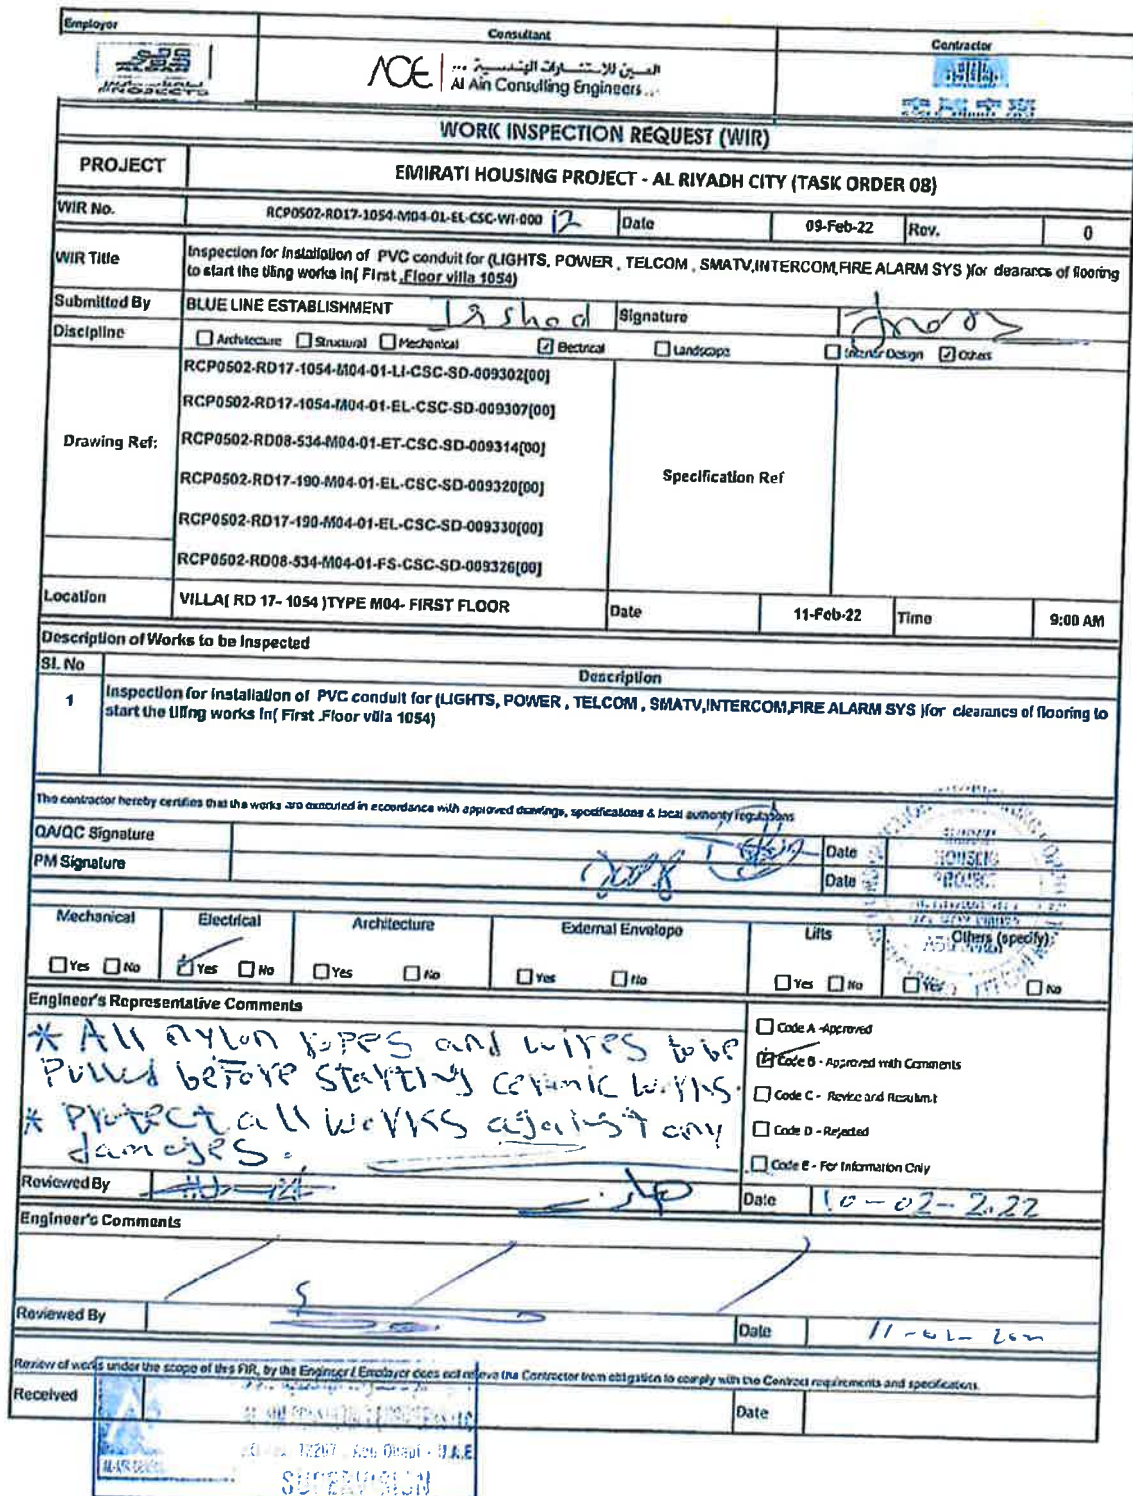 Employer
Consultant
Contractor
PROJECTS
ACE
العين للاستشارات الهندسية ...
Al Ain Consulting Engineers ...
WORK INSPECTION REQUEST (WIR)
PROJECT
EMIRATI HOUSING PROJECT - AL RIYADH CITY (TASK ORDER 08)
WIR No.
RCP0502-RD17-1054-M04-01-EL-CSC-WI-000 12
Date
09-Feb-22
Rev.
0
WIR Title
Inspection for Installation of PVC conduit for (LIGHTS, POWER , TELCOM , SMATV,INTERCOM,FIRE ALARM SYS )for clearancs of flooring
to start the tiling works in( First .Floor villa 1054)
Submitted By
BLUE LINE ESTABLISHMENT
Irshad
Signature
Discipline
Architecture
Structural
Mechanical
Electrical
Landscape
Interior Design
Others
Drawing Ref:
RCP0502-RD17-1054-M04-01-LI-CSC-SD-009302[00]
RCP0502-RD17-1054-M04-01-EL-CSC-SD-009307[00]
RCP0502-RD08-534-M04-01-ET-CSC-SD-009314[00]
RCP0502-RD17-190-M04-01-EL-CSC-SD-009320[00]
RCP0502-RD17-190-M04-01-EL-CSC-SD-009330[00]
RCP0502-RD08-534-M04-01-FS-CSC-SD-009326[00]
Specification Ref
Location
VILLA( RD 17- 1054 )TYPE M04- FIRST FLOOR
Date
11-Feb-22
Time
9:00 AM
Description of Works to be Inspected
SI. No
Description
1
Inspection for installation of PVC conduit for (LIGHTS, POWER , TELCOM , SMATV,INTERCOM,FIRE ALARM SYS )for clearancs of flooring to
start the tiling works in( First .Floor villa 1054)
The contractor hereby certifies that the works are executed in accordance with approved drawings, specifications & local authority regulations
QA/QC Signature
Date
PM Signature
Date
HOUSING
PROJECT
Mechanical
Electrical
Architecture
External Envelope
Lifts
Others (specify):
Yes
No
Yes
No
Yes
No
Yes
No
Yes
No
Yes
No
Engineer's Representative Comments
* All nylon ropes and wires to be
Pulled before starting ceramic works.
* Protect all works against any
damages.
Code A -Approved
Code B - Approved with Comments
Code C - Revise and Resubmit
Code D - Rejected
Code E - For Information Only
Reviewed By
Date
10-02-2022
Engineer's Comments
Reviewed By
Date
Review of works under the scope of this FIR, by the Engineer / Employer does not relieve the Contractor from obligation to comply with the Contract requirements and specifications.
Received
Date
Abu Dhabi - U.A.E
SUPERVISION